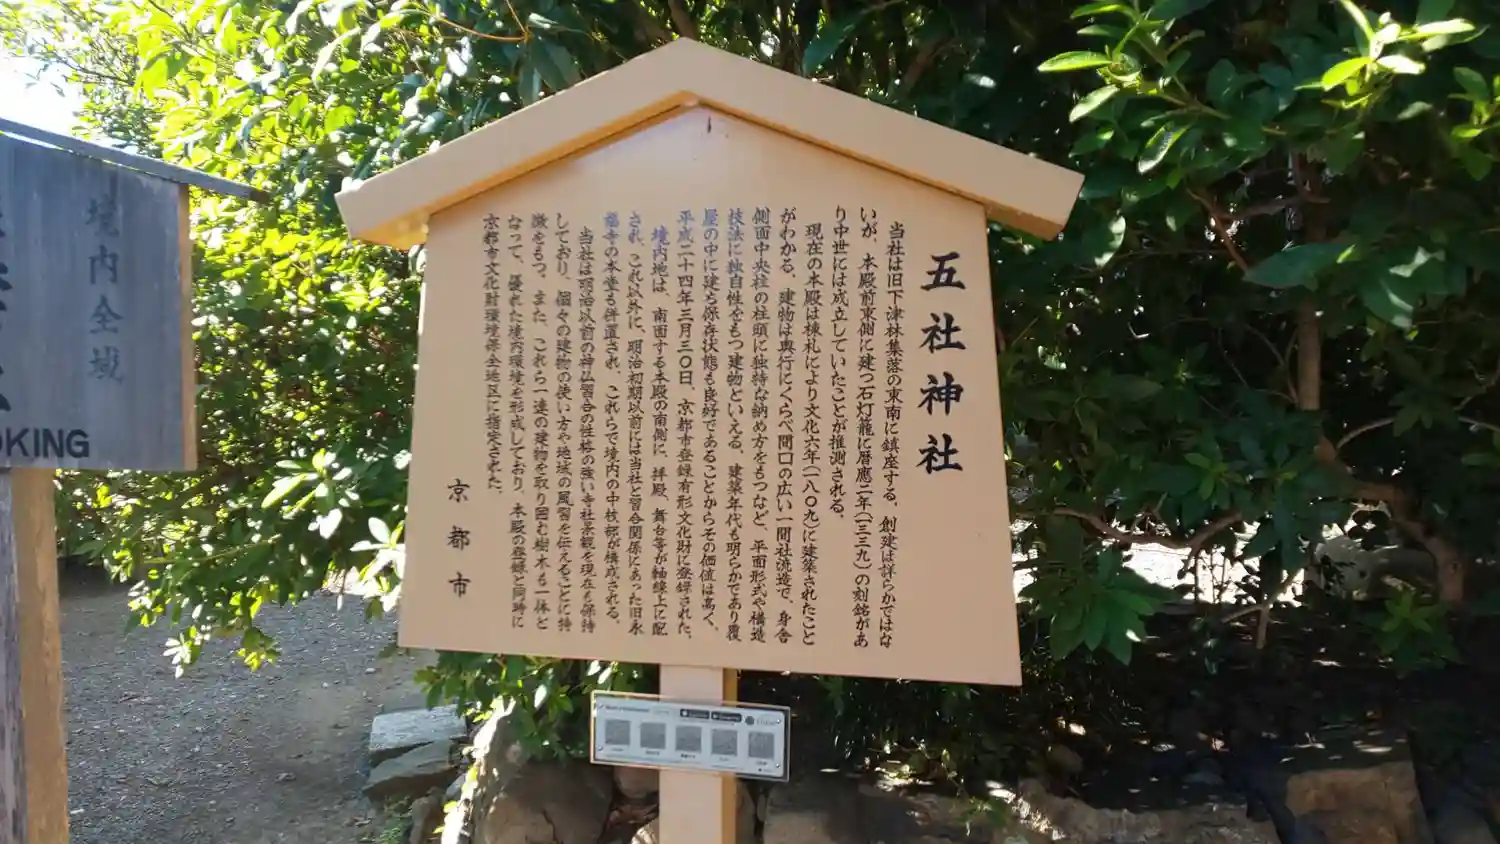 五社神社
当社は旧下津林集落の東南に鎮座する。創建は詳らかではな
いが、本殿前東側に建つ石灯籠に暦應二年(一三三九)の刻銘があ
り中世には成立していたことが推測される。
現在の本殿は棟札により文化六年(一八〇九)に建築されたこと
がわかる。建物は奥行にくらべ間口の広い一間社流造で、身舎
側面中央柱の柱頭に独特な納め方をもつなど、平面形式や構造
技法に独自性をもつ建物といえる。建築年代も明らかであり覆
屋の中に建ち保存状態も良好であることからその価値は高く、
平成二十四年三月三〇日、京都市登録有形文化財に登録された。
境内地は、南面する本殿の南側に、拝殿、舞台等が軸線上に配
され、これ以外に、明治初期以前には当社と習合関係にあった旧永
福寺の本堂も併置され、これらで境内の中枢部が構成される。
当社は明治以前の神仏習合の性格の強い寺社景観を現在も保持
しており、個々の建物の使い方や地域の風習を伝えることに特
徴をもつ。また、これら一連の建物を取り囲む樹木も一体と
なって、優れた境内環境を形成しており、本殿の登録と同時に
京都市文化財環境保全地区に指定された。
京都市
境内全域
OKING